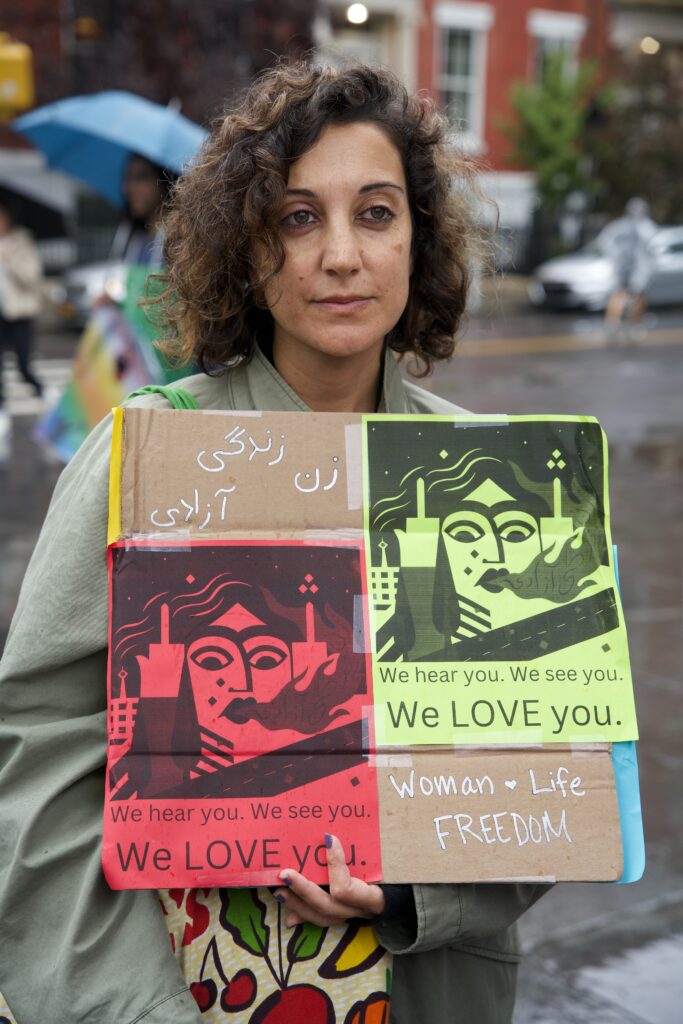 زن زندگی
آزادی
We hear you. We see you.
We LOVE you.
We hear you. We see you.
We LOVE you.
Woman ♥ Life
FREEDOM